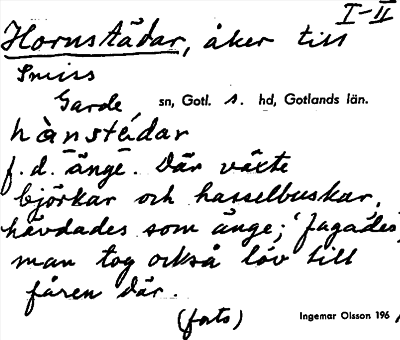 I-II
Hornstädar, åker till
Smiss
Garde sn, Gotl. s. hd, Gotlands län.
hànstédar
f.d. änge. Där växte
björkar och hasselbuskar,
hävdades som änge; 'fagades',
man tog också löv till
fåren där.
(forts)
Ingemar Olsson 196